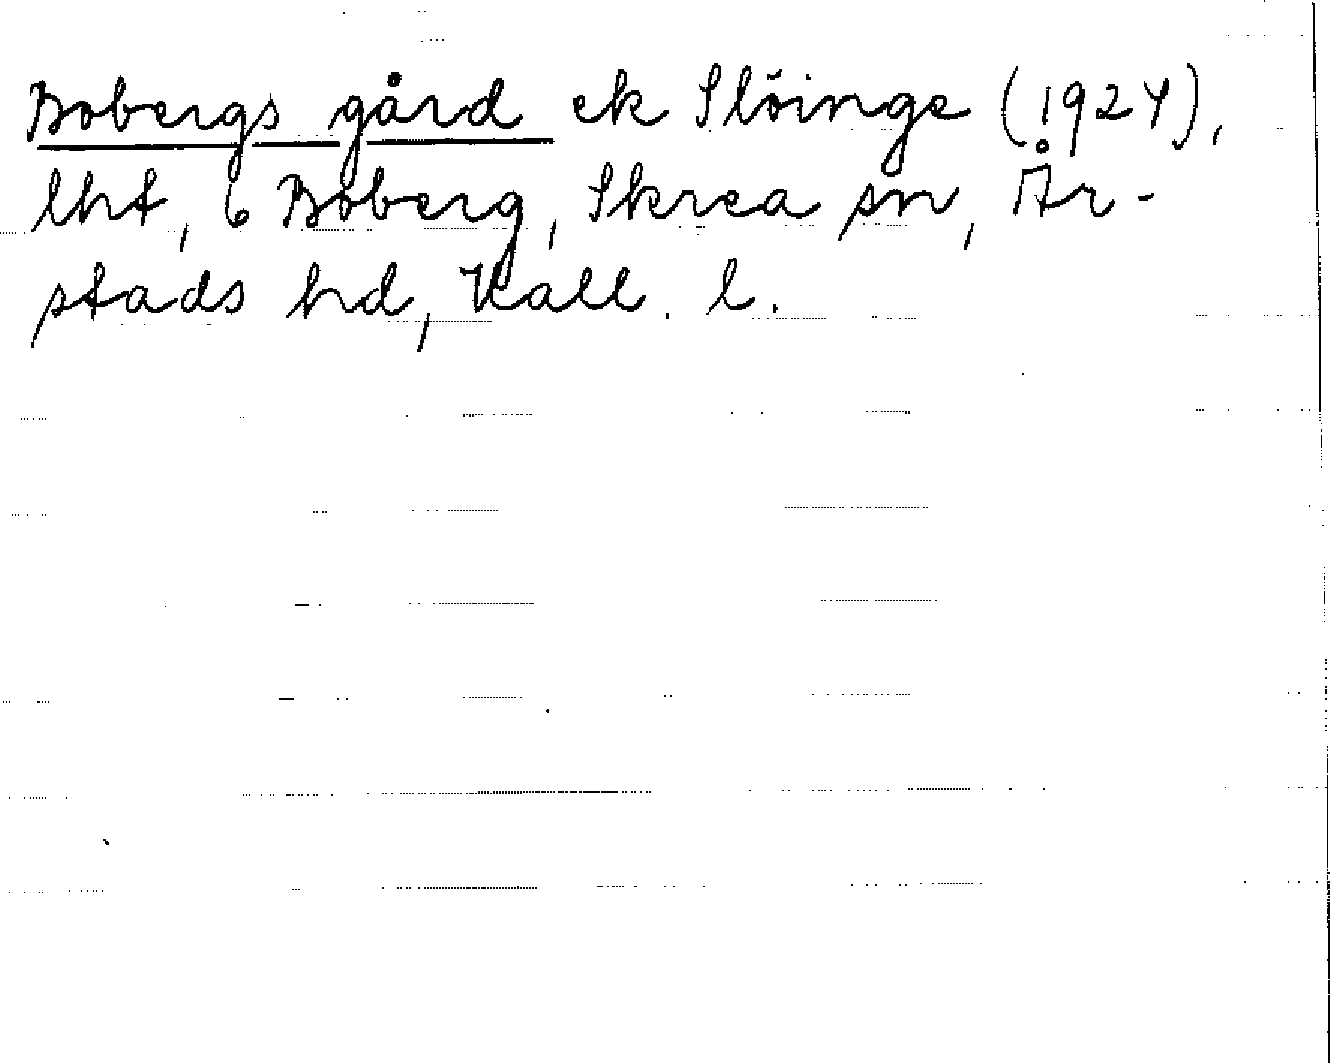 Bobergs gård ek Slöinge (1924),
lht, 6 Boberg, Skrea sn, År-
stads hd, Hall. l.